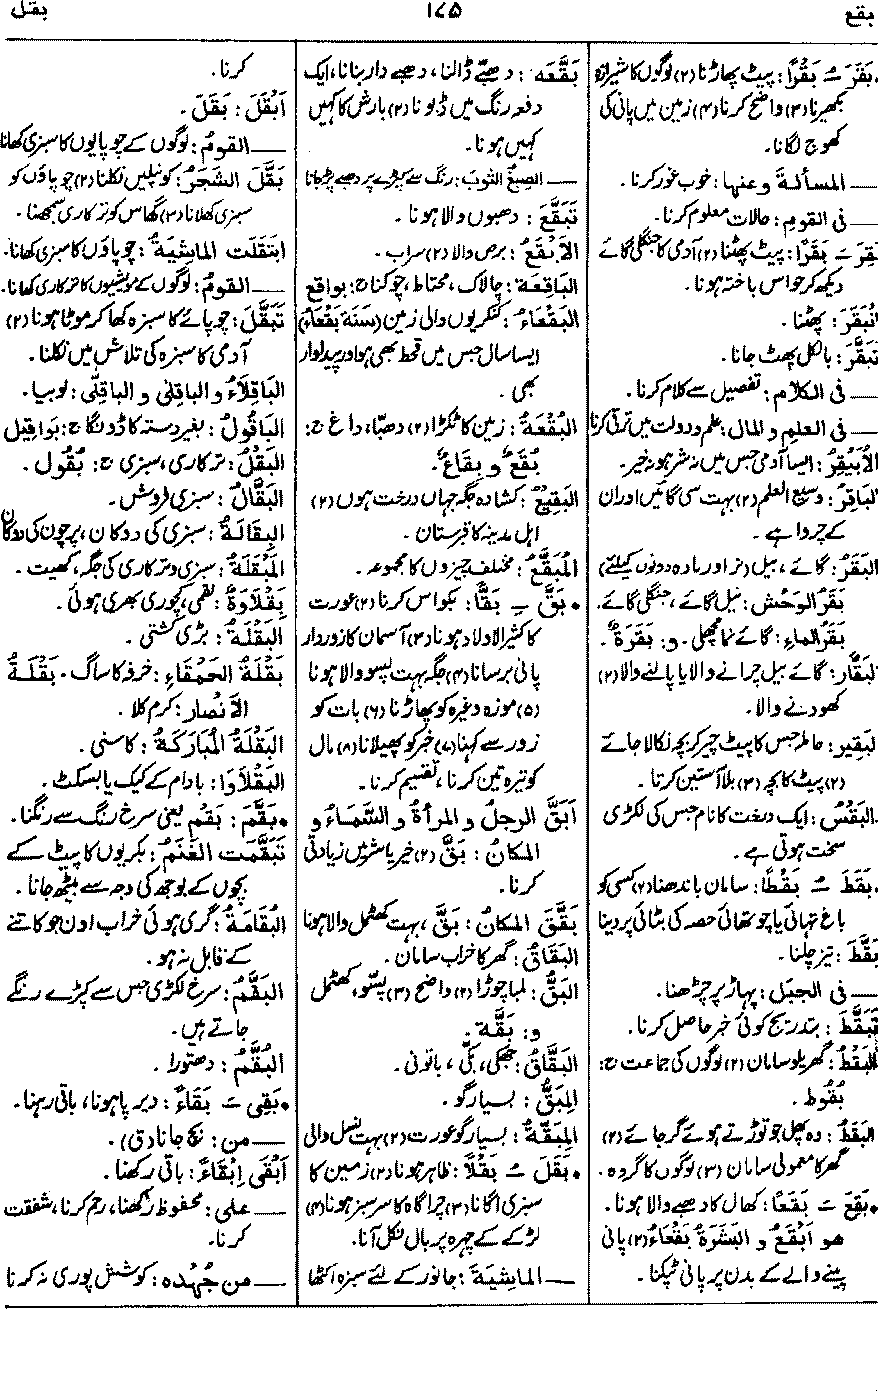 بقع
۱۷۵
بقل
•بَقَرَ ـُ بَقْرًا: پیٹ پھاڑنا (۲) لوگوں کا شیرازہ
بکھیرنا (۳) واضح کرنا (۴) زمین میں پانی کی
کھوج لگانا۔
ــــ المسألةَ وعنها: خوب غور کرنا۔
ــــ فی القومِ: حالات معلوم کرنا۔
بَقِرَ ـَ بَقَرًا: پیٹ پھٹنا (۲) آدمی کا جنگلی گائے
دیکھ کر حواس باختہ ہونا۔
اِنْبَقَرَ: پھٹنا۔
تَبَقَّرَ: بالکل پھٹ جانا۔
ــــ فی الکلام: تفصیل سے کلام کرنا۔
ــــ فی العلمِ و المال: علم و دولت میں ترقی کرنا
الأُبَیْقِرُ: ایسا آدمی جس میں نہ شر ہو نہ خیر۔
البَاقِرُ: وسیع العلم (۲) بہت سی گائیں اور ان
کے چرواہے۔
البَقَرُ: گائے، بیل (نر اور مادہ دونوں کیلئے)
بَقَرُ الوَحْش: نیل گائے، جنگلی گائے۔
بَقَرُ الماءِ: گائے نما مچھلی۔ و: بَقَرَةٌ۔
البَقَّار: گائے بیل چرانے والا یا پالنے والا (۲)
کھودنے والا۔
البَقِیر: حاملہ جس کا پیٹ چیر کر بچہ نکالا جائے
(۲) پیٹ کا بچہ (۳) بلا آستین کرتا۔
البَقْسُ: ایک درخت کا نام جس کی لکڑی
سخت ہوتی ہے۔
•بَقَطَ ـُ بَقْطًا: سامان باندھنا (۲) کسی کو
باغ تہائی یا چوتھائی حصہ کی بٹائی پر دینا
بَقَّطَ: تیز چلنا۔
ــــ فی الجبَل: پہاڑ پر چڑھنا۔
تَبَقَّطَ: بتدریج کوئی خبر حاصل کرنا۔
البَقْطُ: گھریلو سامان (۲) لوگوں کی جماعت ج:
بُقُوط۔
البَقَطُ: وہ پھل جو توڑتے ہوئے گر جائے (۲)
گھر کا معمولی سامان (۳) لوگوں کا گروہ۔
•بَقِعَ ـَ بَقَعًا: کھال کا دھبے والا ہونا۔
هو أبْقَعُ و البَشَرَةُ بَقْعَاءُ (۲) پانی
پینے والے کے بدن پر پانی ٹپکنا۔
بَقَّعَه: دھبّے ڈالنا، دھبے دار بنانا، ایک
دفعہ رنگ میں ڈبونا (۲) بارش کا کہیں
کہیں ہونا۔
ــــ الصِبغُ الثوبَ: رنگ سے کپڑے پر دھبے پڑجانا
تَبَقَّعَ: دھبوں والا ہونا۔
الأَبْقَعُ: برص والا (۲) سراب۔
البَاقِعَة: چالاک، محتاط، چوکنا ج: بواقع
البَقْعَاءُ: کنکریوں والی زمین (سَنَة بَقْعَاء)
ایسا سال جس میں قحط بھی ہو اور پیداوار
بھی۔
البُقْعَةُ: زمین کا ٹکڑا (۲) دھبّا، داغ ج:
بُقَعٌ و بِقَاعٌ۔
البَقِیْعُ: کشادہ جگہ جہاں درخت ہوں (۲)
اہل مدینہ کا قبرستان۔
المُبَقَّعُ: مختلف چیزوں کا مجموعہ۔
•بَقَّ ـِ بَقًّا: بکواس کرنا (۲) عورت
کا کثیر الاولاد ہونا (۳) آسمان کا زور دار
پانی برسانا (۴) جگہ بہت پسو والا ہونا
(۵) موزہ وغیرہ کو پھاڑنا (۶) بات کو
زور سے کہنا (۷) خبر کو پھیلانا (۸) مال
کو تیرہ تین کرنا، تقسیم کرنا۔
أبَقَّ الرجلُ و المرأةُ و السَّمَاءُ و
المکانُ: بَقَّ (۲) خیر یا شر میں زیادتی
کرنا۔
بَقَّقَ المکانُ: بَقَّ، بہت کھٹمل والا ہونا
البَقَاقُ: گھر کا خراب سامان۔
البَقُّ: لمبا چوڑا (۲) واضح (۳) پسّو، کھٹمل
و: بَقَّة۔
البَقَّاقُ: جھکی، بکّی، باتونی۔
المِبَقُّ: بسیارگو۔
المِبَقَّةُ: بسیارگو عورت (۲) بہت نسل والی
•بَقَلَ ـُ بَقْلاً: ظاہر ہونا (۲) زمین کا
سبزی اگانا (۳) چراگاہ کا سرسبز ہونا (۴)
لڑکے کے چہرہ پر بال نکل آنا۔
ــــ المَاشِیَةَ: جانور کے لئے سبزہ اکٹھا
کرنا۔
أبْقَلَ: بَقَلَ۔
ــــ القومُ: لوگوں کے چوپایوں کا سبزی کھانا
بَقَّلَ الشَجَرُ: کونپلیں نکلنا (۲) چوپاؤں کو
سبزی کھلانا (۳) گھاس کو ترکاری سمجھنا۔
ابتَقَلَت المَاشِیَةُ: چوپاؤں کا سبزی کھانا۔
ــــ القومُ: لوگوں کے مویشیوں کا ترکاری کھانا۔
تَبَقَّلَ: چوپائے کا سبزہ کھا کر موٹا ہونا (۲)
آدمی کا سبزہ کی تلاش میں نکلنا۔
البَاقِلَاءُ و الباقِلیٰ و الباقِلّی: لوبیا۔
البَاقُولُ: بغیر دستہ کا ڈونگا ج: بَوَاقِیل
البَقْلُ: ترکاری، سبزی ج: بُقُول۔
البَقَّالُ: سبزی فروش۔
البِقَالَةُ: سبزی کی دوکان، پرچون کی دوکان
المَبْقَلَةُ: سبزی و ترکاری کی جگہ، کھیت۔
بِقْلَاوَةُ: نقی، کچوری بھری ہوئی۔
البَقْلَةُ: بڑی کشتی۔
بَقْلَةُ الحَمْقَاءِ: خرفہ کا ساگ۔ بَقْلَةُ
الأنْصَار: کرم کلا۔
البَقْلَةُ المُبَارَکَةُ: کاسنی۔
البَقْلَاوَا: بادام کے کیک یا بسکٹ۔
•بَقَّمَ: بَقَم یعنی سرخ رنگ سے رنگنا۔
تَبَقَّمَت الغَنَمُ: بکریوں کا پیٹ کے
بچوں کے بوجھ کی وجہ سے بیٹھ جانا۔
البُقَامَةُ: گری ہوئی خراب اون جو کاتنے
کے قابل نہ ہو۔
البَقَّمُ: سرخ لکڑی جس سے کپڑے رنگے
جاتے ہیں۔
البُقُمُ: دھتورا۔
•بَقِیَ ـَ بَقَاءً: دیر پا ہونا، باقی رہنا۔
ــــ من: بچ جانا (ق)۔
أبْقَی اِبْقَاءً: باقی رکھنا۔
ــــ علی: محفوظ رکھنا، رحم کرنا، شفقت
کرنا۔
ــــ من جُهْدِه: کوشش پوری نہ کرنا